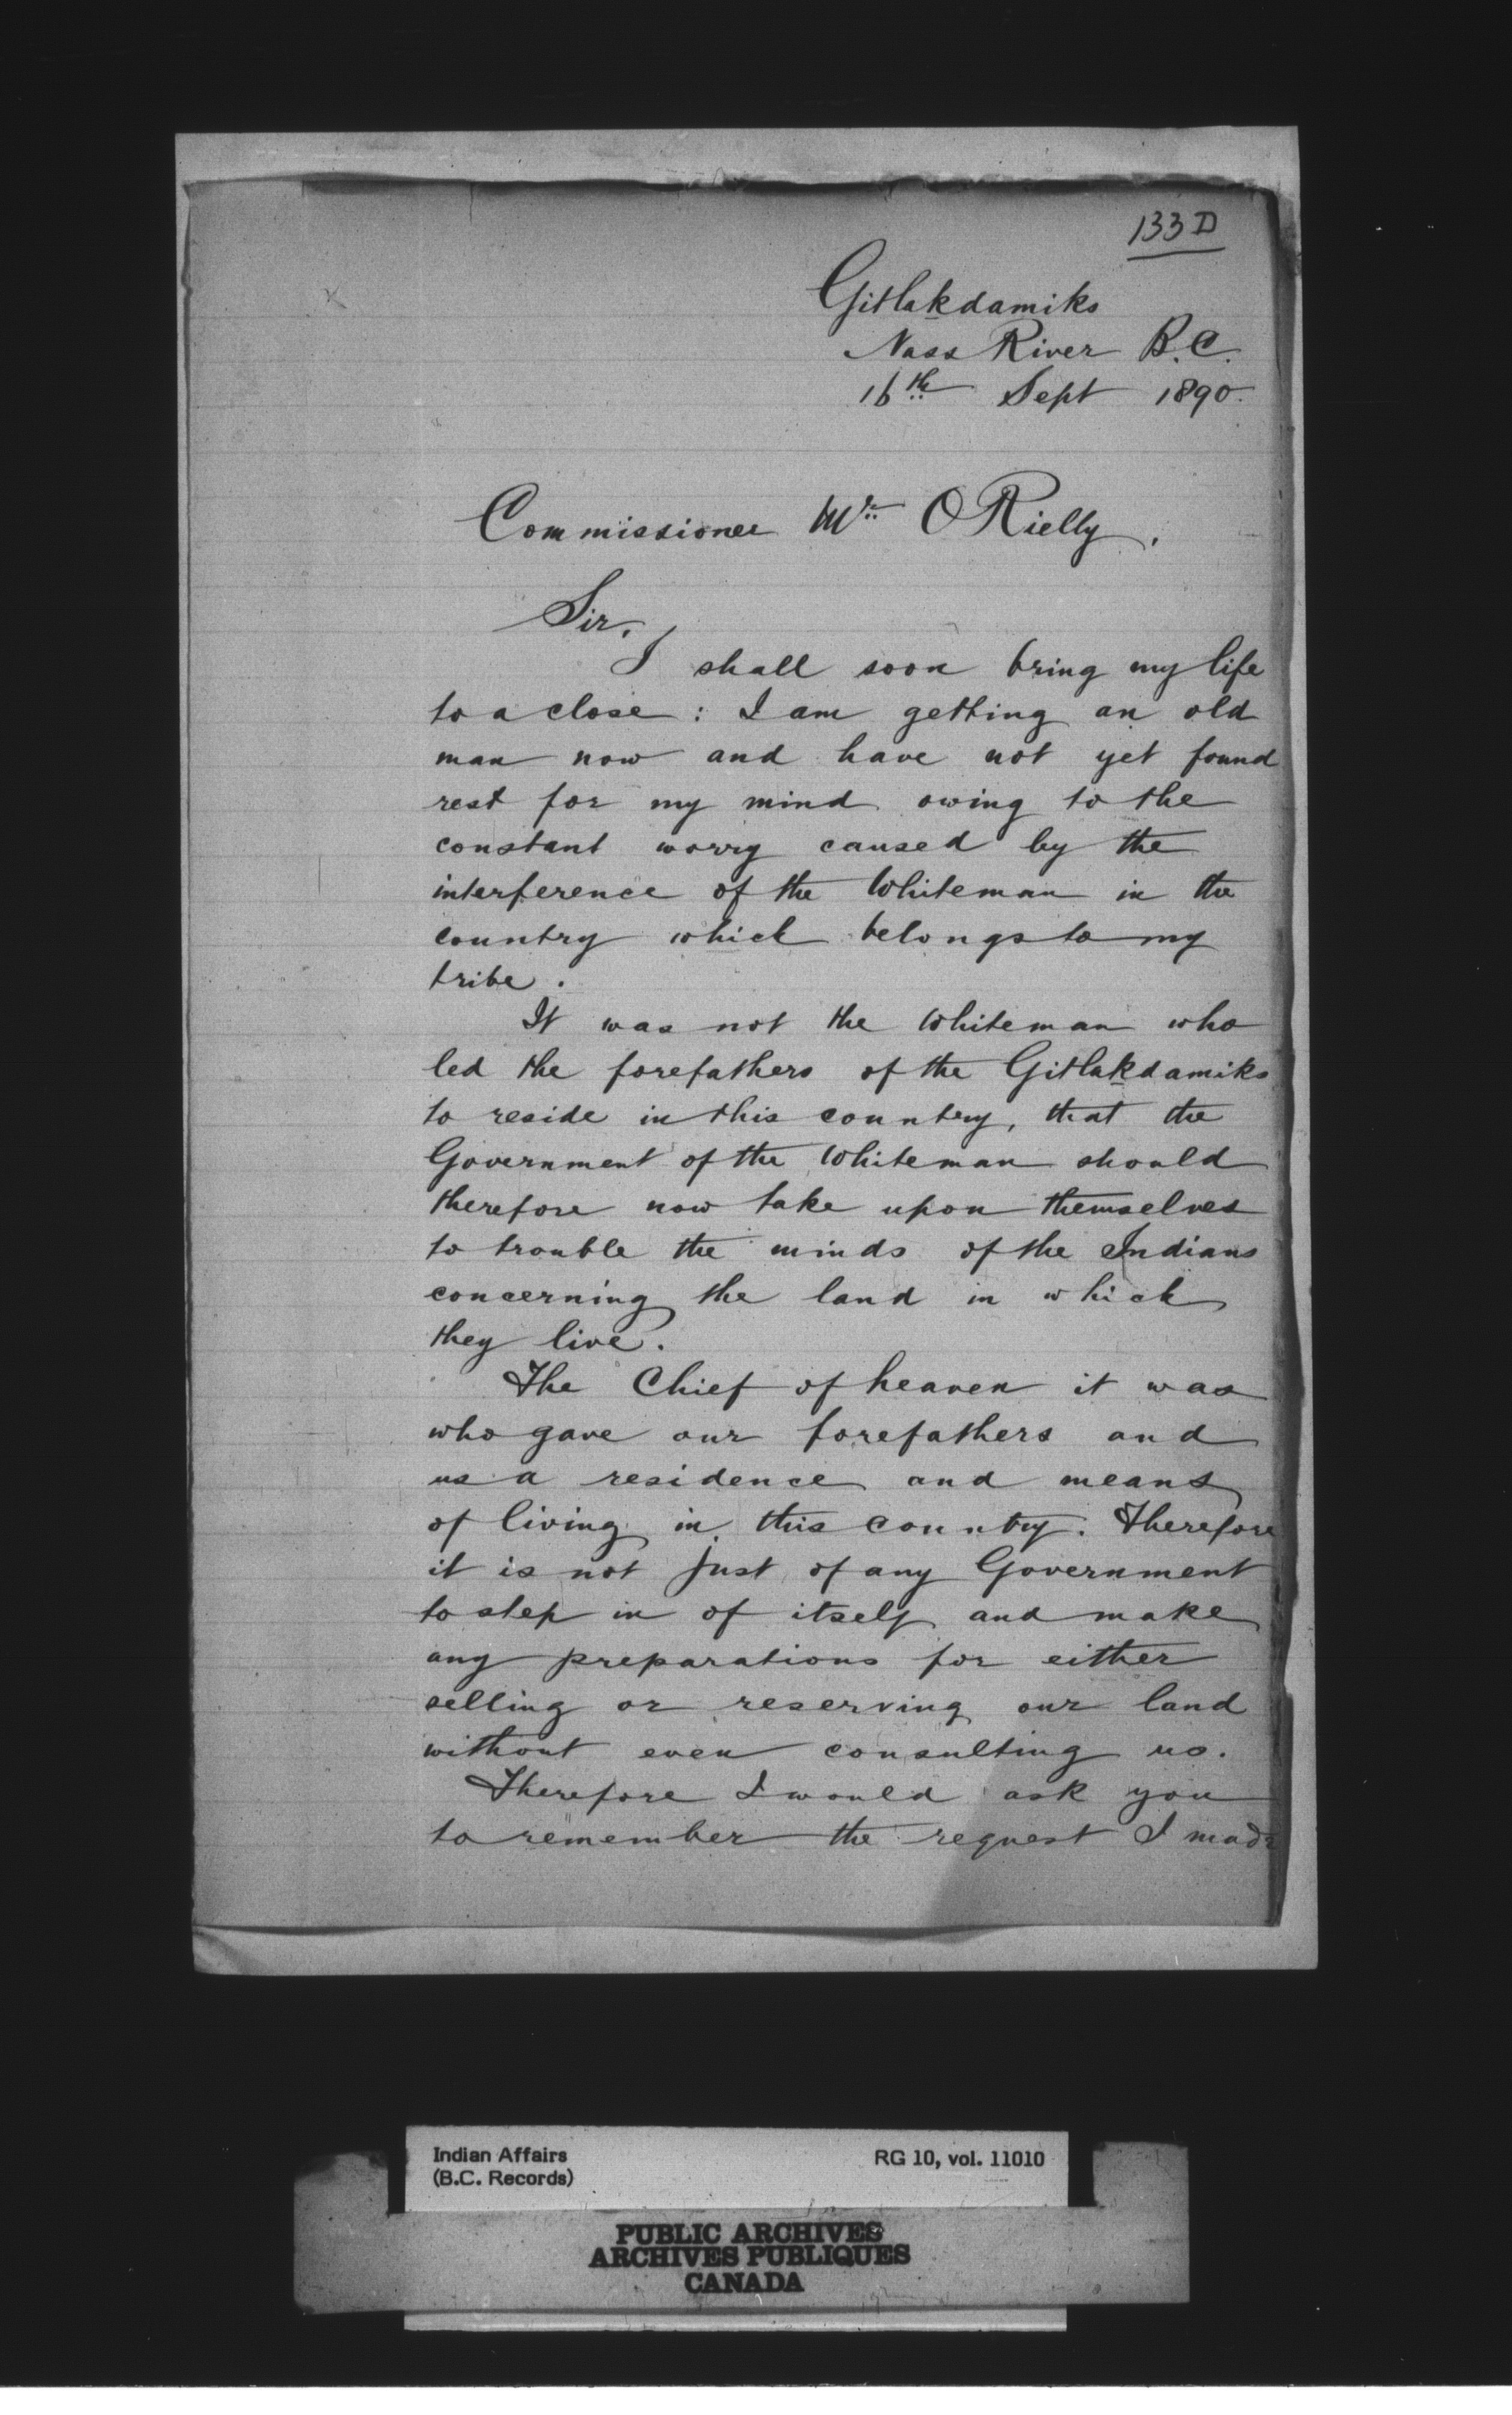 133 D
Gitlakdamiks
Nass River B.C.
16th Sept 1890.
Commissioner Mr ORielly,
Sir,
I shall soon bring my life
to a close: I am getting an old
man now and have not yet found
rest for my mind owing to the
constant worry caused by the
interference of the Whiteman in the
country which belongs to my
tribe.
It was not the Whiteman who
led the forefathers of the Gitlakdamiks
to reside in this country, that the
Government of the Whiteman should
therefore now take upon themselves
to trouble the minds of the Indians
concerning the land in which
they live.
The Chief of heaven it was
who gave our forefathers and
us a residence and means
of living in this country. Therefore
it is not just of any Government
to step in of itself and make
any preparations for either
selling or reserving our land
without even consulting us.
Therefore I would ask you
to remember the request I made
Indian Affairs RG 10, vol. 11010
(B.C. Records)
PUBLIC ARCHIVES
ARCHIVES PUBLIQUES
CANADA